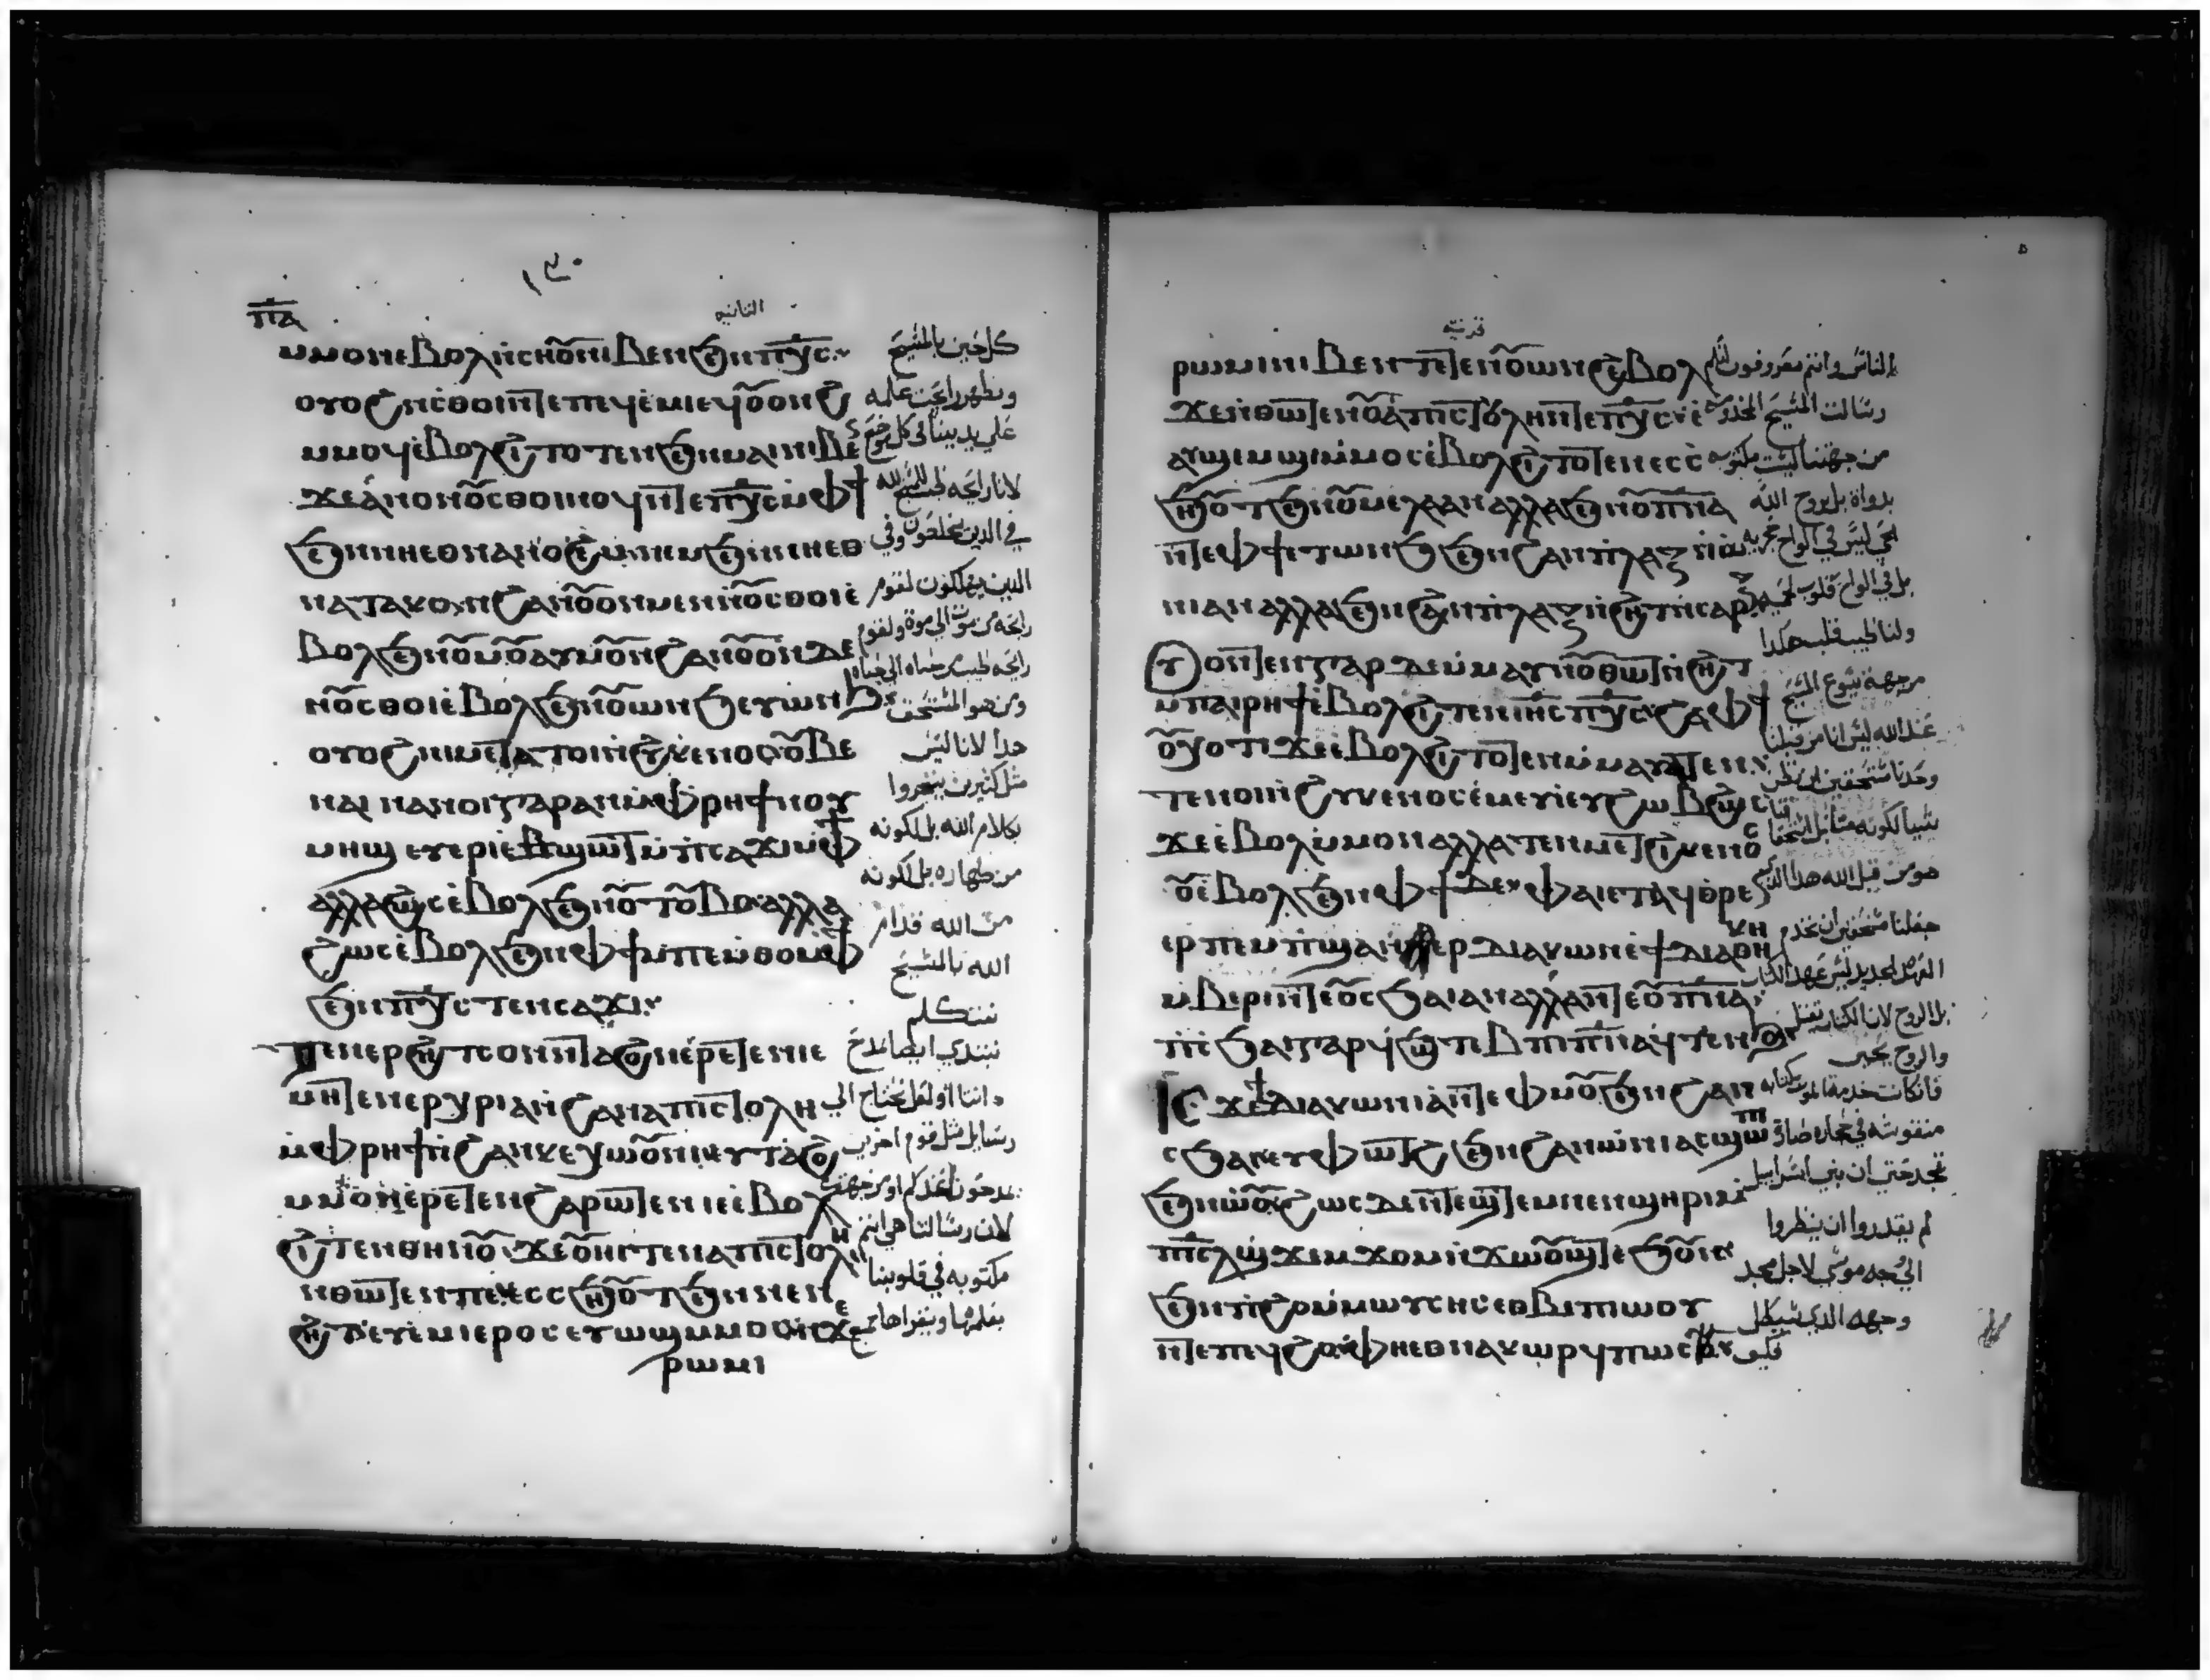 ١٣٠
ⲡ̅ⲁ̅
الثانيه
ⲙⲙⲟⲛ ⲉⲃⲟⲗ ⲛⲥⲏⲟⲩ ⲛⲓⲃⲉⲛ ϧⲉⲛ ⲡⲭ̅ⲥ
ⲟⲩⲟϩ ⲡⲥⲑⲟⲓ ⲛⲧⲉ ⲡⲉϥⲉⲙⲓ ⲉϥⲟⲩⲟⲛϩ
ⲙⲙⲟϥ ⲉⲃⲟⲗ ϩⲓⲧⲟⲧⲉⲛ ϧⲉⲛ ⲙⲁⲓ ⲛⲓⲃⲉ
ϫⲉ ⲁⲛⲟⲛ ⲟⲩⲥⲑⲟⲓ ⲛⲟⲩϥⲓ ⲛⲧⲉ ⲡⲭ̅ⲥ ⲙⲫϯ
ϧⲉⲛ ⲛⲏⲉⲑⲛⲁⲛⲟϩⲉⲙ ⲛⲉⲙ ϧⲉⲛ ⲛⲏⲉⲑ
ⲛⲁⲧⲁⲕⲟ ϩⲁⲛⲟⲩⲟⲛ ⲙⲉⲛ ⲛⲟⲩⲥⲑⲟⲓ ⲉ
ⲃⲟⲗ ϧⲉⲛ ⲟⲩⲙⲟⲩ ⲁⲩⲙⲟⲩ ϩⲁⲛⲟⲩⲟⲛ ⲇⲉ
ⲛⲟⲩⲥⲑⲟⲓ ⲉⲃⲟⲗ ϧⲉⲛ ⲟⲩⲱⲛϧ ⲉⲩⲱⲛϧ
ⲟⲩⲟϩ ⲛⲓⲙ ⲉⲧⲁⲧⲟⲓ ⲛϩⲓⲕⲉⲛⲟⲥ ⲟⲩⲃⲉ
ⲛⲁⲓ ⲛⲁⲛⲟⲓ ⲅⲁⲣ ⲁⲛ ⲙⲫⲣⲏϯ ⲛⲟⲩ
ⲙⲏϣ ⲉⲩⲉⲣⲓⲉⲃϣⲱⲧ ⲙⲡⲥⲁϫⲓ ⲙⲫϯ
ⲁⲗⲗⲁ ϩⲱⲥ ⲉⲃⲟⲗ ϧⲉⲛ ⲟⲩⲧⲟⲩⲃⲟ ⲁⲗⲗⲁ
ϩⲱⲥ ⲉⲃⲟⲗ ϧⲉⲛ ⲫϯ ⲙⲡⲉⲙⲑⲟ ⲙⲫϯ
ϧⲉⲛ ⲡⲭ̅ⲥ ⲧⲉⲛⲥⲁϫⲓ
ⲧⲉⲛⲉⲣϩⲏⲧⲥ ⲟⲛ ⲛⲧⲁϩⲟ ⲛⲉⲣⲉⲧⲉⲛ ⲓⲉ
ⲙⲏ ⲧⲉⲛⲉⲣⲭⲣⲓⲁ ⲛϩⲁⲛⲁⲡⲓⲥⲧⲟⲗⲏ
ⲙⲫⲣⲏϯ ⲛϩⲁⲛⲕⲉⲭⲱⲟⲩⲛⲓ ⲉⲩⲧⲁϩⲟ
ⲙⲙⲟⲛ ⲉⲣⲉⲧⲉⲛ ϩⲁⲣⲱⲧⲉⲛ ⲓⲉ ⲉⲃⲟⲗ
ϩⲓⲧⲉⲛ ⲑⲏⲛⲟⲩ ϫⲉ ⲟⲩⲏⲓ ⲧⲉⲛⲁⲡⲓⲥⲧⲟⲗⲏ
ⲛⲑⲱⲧⲉⲛ ⲡⲉ ⲉⲥⲥϧⲏⲟⲩⲧ ϧⲉⲛ ⲛⲉⲛ
ϩⲏⲧ ⲉⲩⲉⲙⲓ ⲉⲣⲟⲥ ⲉⲩⲱϣ ⲙⲙⲟⲥ ⲛϫⲉ
ⲣⲱⲙⲓ
كل حين بالمسيح
ويظهر رايحت علمه
علي يدينا في كل موضع
لانا رايحه طيبه للمسيح لله
في الدين يخلصون وفي
الدين يهلكون لقوم
رايحه من موت الي موة ولقوم
رايحه طيب من حياه الي حياه
ومن هو المستحق
هدا لانا ليس
مثل كثيرين يتجروا
بكلام الله بل لكونه
من طهاره بل لكونه
من الله قدام
الله بالمسيح
نتكلم
نبتدي ايضا نمدح
داتنا او لعل نحتاج الي
رسايل مثل قوم اخرين
يمدحونا عندكم او من جهتكم
لان رسالتنا هي انتم
مكتوبه في قلوبنا
يعلمها ويقراها جميع
قرنتيه
ⲣⲱⲙⲓ ⲛⲓⲃⲉⲛ ⲧⲉⲧⲉⲛⲟⲩⲱⲛϩ ⲉⲃⲟⲗ
ϫⲉ ⲛⲑⲱⲧⲉⲛ ⲟⲩⲁⲡⲓⲥⲧⲟⲗⲏ ⲛⲧⲉ ⲡⲭ̅ⲥ ⲉ
ⲁⲩϣⲉⲙϣⲓ ⲙⲙⲟⲥ ⲉⲃⲟⲗ ϩⲓⲧⲟⲧⲉⲛ ⲉⲥⲥ
ϧⲏⲟⲩⲧ ϧⲉⲛ ⲟⲩⲙⲉⲗⲁ ⲁⲛ ⲁⲗⲗⲁ ϧⲉⲛ ⲟⲩⲡ̅ⲛ̅ⲁ̅
ⲛⲧⲉ ⲫϯ ⲉⲧⲱⲛϧ ϧⲉⲛ ϩⲁⲛⲡⲗⲁⲝ ⲛⲱ
ⲛⲓ ⲁⲛ ⲁⲗⲗⲁ ϧⲉⲛ ϩⲁⲛⲡⲗⲁⲝ ⲛϩⲏⲧ ⲛⲥⲁⲣⲝ
ⲟⲩⲟⲛⲧⲉⲛ ⲅⲁⲣ ⲇⲉ ⲙⲙⲁⲩ ⲛⲟⲩⲑⲱⲧ ⲛϩⲏⲧ
ⲙⲡⲁⲓⲣⲏϯ ⲉⲃⲟⲗ ϩⲓⲧⲉⲛ ⲓⲏⲥ ⲡⲭ̅ⲥ ϩⲁ ⲫϯ
ⲟⲩⲭ ⲟⲧⲓ ϫⲉ ⲉⲃⲟⲗ ϩⲓⲧⲟⲧⲉⲛ ⲙⲙⲁⲩⲁⲧⲉⲛ
ⲧⲉⲛⲟⲓ ⲛϩⲓⲕⲉⲛⲟⲥ ⲉⲙⲉⲩⲓ ⲉⲩϩⲱⲃ ϩⲱⲥ
ϫⲉ ⲉⲃⲟⲗ ⲙⲙⲟⲛ ⲁⲗⲗⲁ ⲧⲉⲛⲙⲉⲧϩⲓⲕⲉⲛⲟⲥ
ⲟⲩⲉⲃⲟⲗ ϧⲉⲛ ⲫϯ ⲧⲉ ⲫⲁⲓ ⲉⲧⲁϥⲑⲣⲉⲛ
ⲉⲣⲡⲉⲙⲡϣⲁ ⲛⲉⲣⲇⲓⲁⲕⲱⲛ ⲉϯⲇⲓⲁⲑⲏⲕⲏ
ⲙⲃⲉⲣⲓ ⲛⲧⲉ ⲟⲩⲥϧⲁⲓ ⲁⲛ ⲁⲗⲗⲁ ⲛⲧⲉ ⲟⲩⲡ̅ⲛ̅ⲁ̅
ⲡⲓⲥϧⲁⲓ ⲅⲁⲣ ϥϧⲱⲧⲉⲃ ⲡⲓⲡ̅ⲛ̅ⲁ̅ ϥⲧⲁⲛϧⲟ
ⲓⲥϫⲉ ϯⲇⲓⲁⲕⲱⲛⲓⲁ ⲛⲧⲉ ⲫⲙⲟⲩ ϧⲉⲛ ϩⲁⲛ
ⲥϧⲁⲓ ⲉⲩⲫⲱⲧϩ ϧⲉⲛ ϩⲁⲛⲱⲛⲓ ⲁⲥϣⲱⲡⲓ
ϧⲉⲛ ⲟⲩⲱⲟⲩ ϩⲱⲥⲇⲉ ⲛⲧⲉϣⲧⲉⲙ ⲛⲉⲛϣⲏⲣⲓ ⲙ
ⲡⲓⲥⲗ ϣϫⲉⲙϫⲟⲙ ⲛϫⲟⲩϣⲧ ⲉϧⲟⲩⲛ
ϧⲉⲛ ⲡϩⲟ ⲙⲙⲱⲩⲥⲏⲥ ⲉⲑⲃⲉ ⲡⲱⲟⲩ
ⲛⲧⲉ ⲡⲉϥϩⲟ ⲫⲏⲉⲑⲛⲁⲕⲱⲣϥ ⲡⲱⲥ
الناس وانتم معروفون انكم
رسالت المسيح المخدومه
من جهتنا ليست مكتوبه
بدواة بل بروح الله
الحي ليس في الواح حجريه
بل في الواح قلوب لحميه
ولنا طيب قلب هكدا
من جهة يسوع المسيح
عند الله ليس انا من قبلنا
وحدنا مستحقين ان نظن
شيا لكونه منا بل استحقاقنا
هو من قبل الله هدا الدي
جعلنا مستحقين ان نخدم
العهد الجديد ليس عهد الكتاب
بل الروح لان الكتاب تقتل
والروح يحيي
فان كانت خدمة الموت بكتابه
منقوشه في حجاره صارة
بمجد حتي ان بني اسراييل
لم يقدروا ان ينظروا
الي وجه موسي لاجل مجد
وجهه الدي سيبطل
فكيف